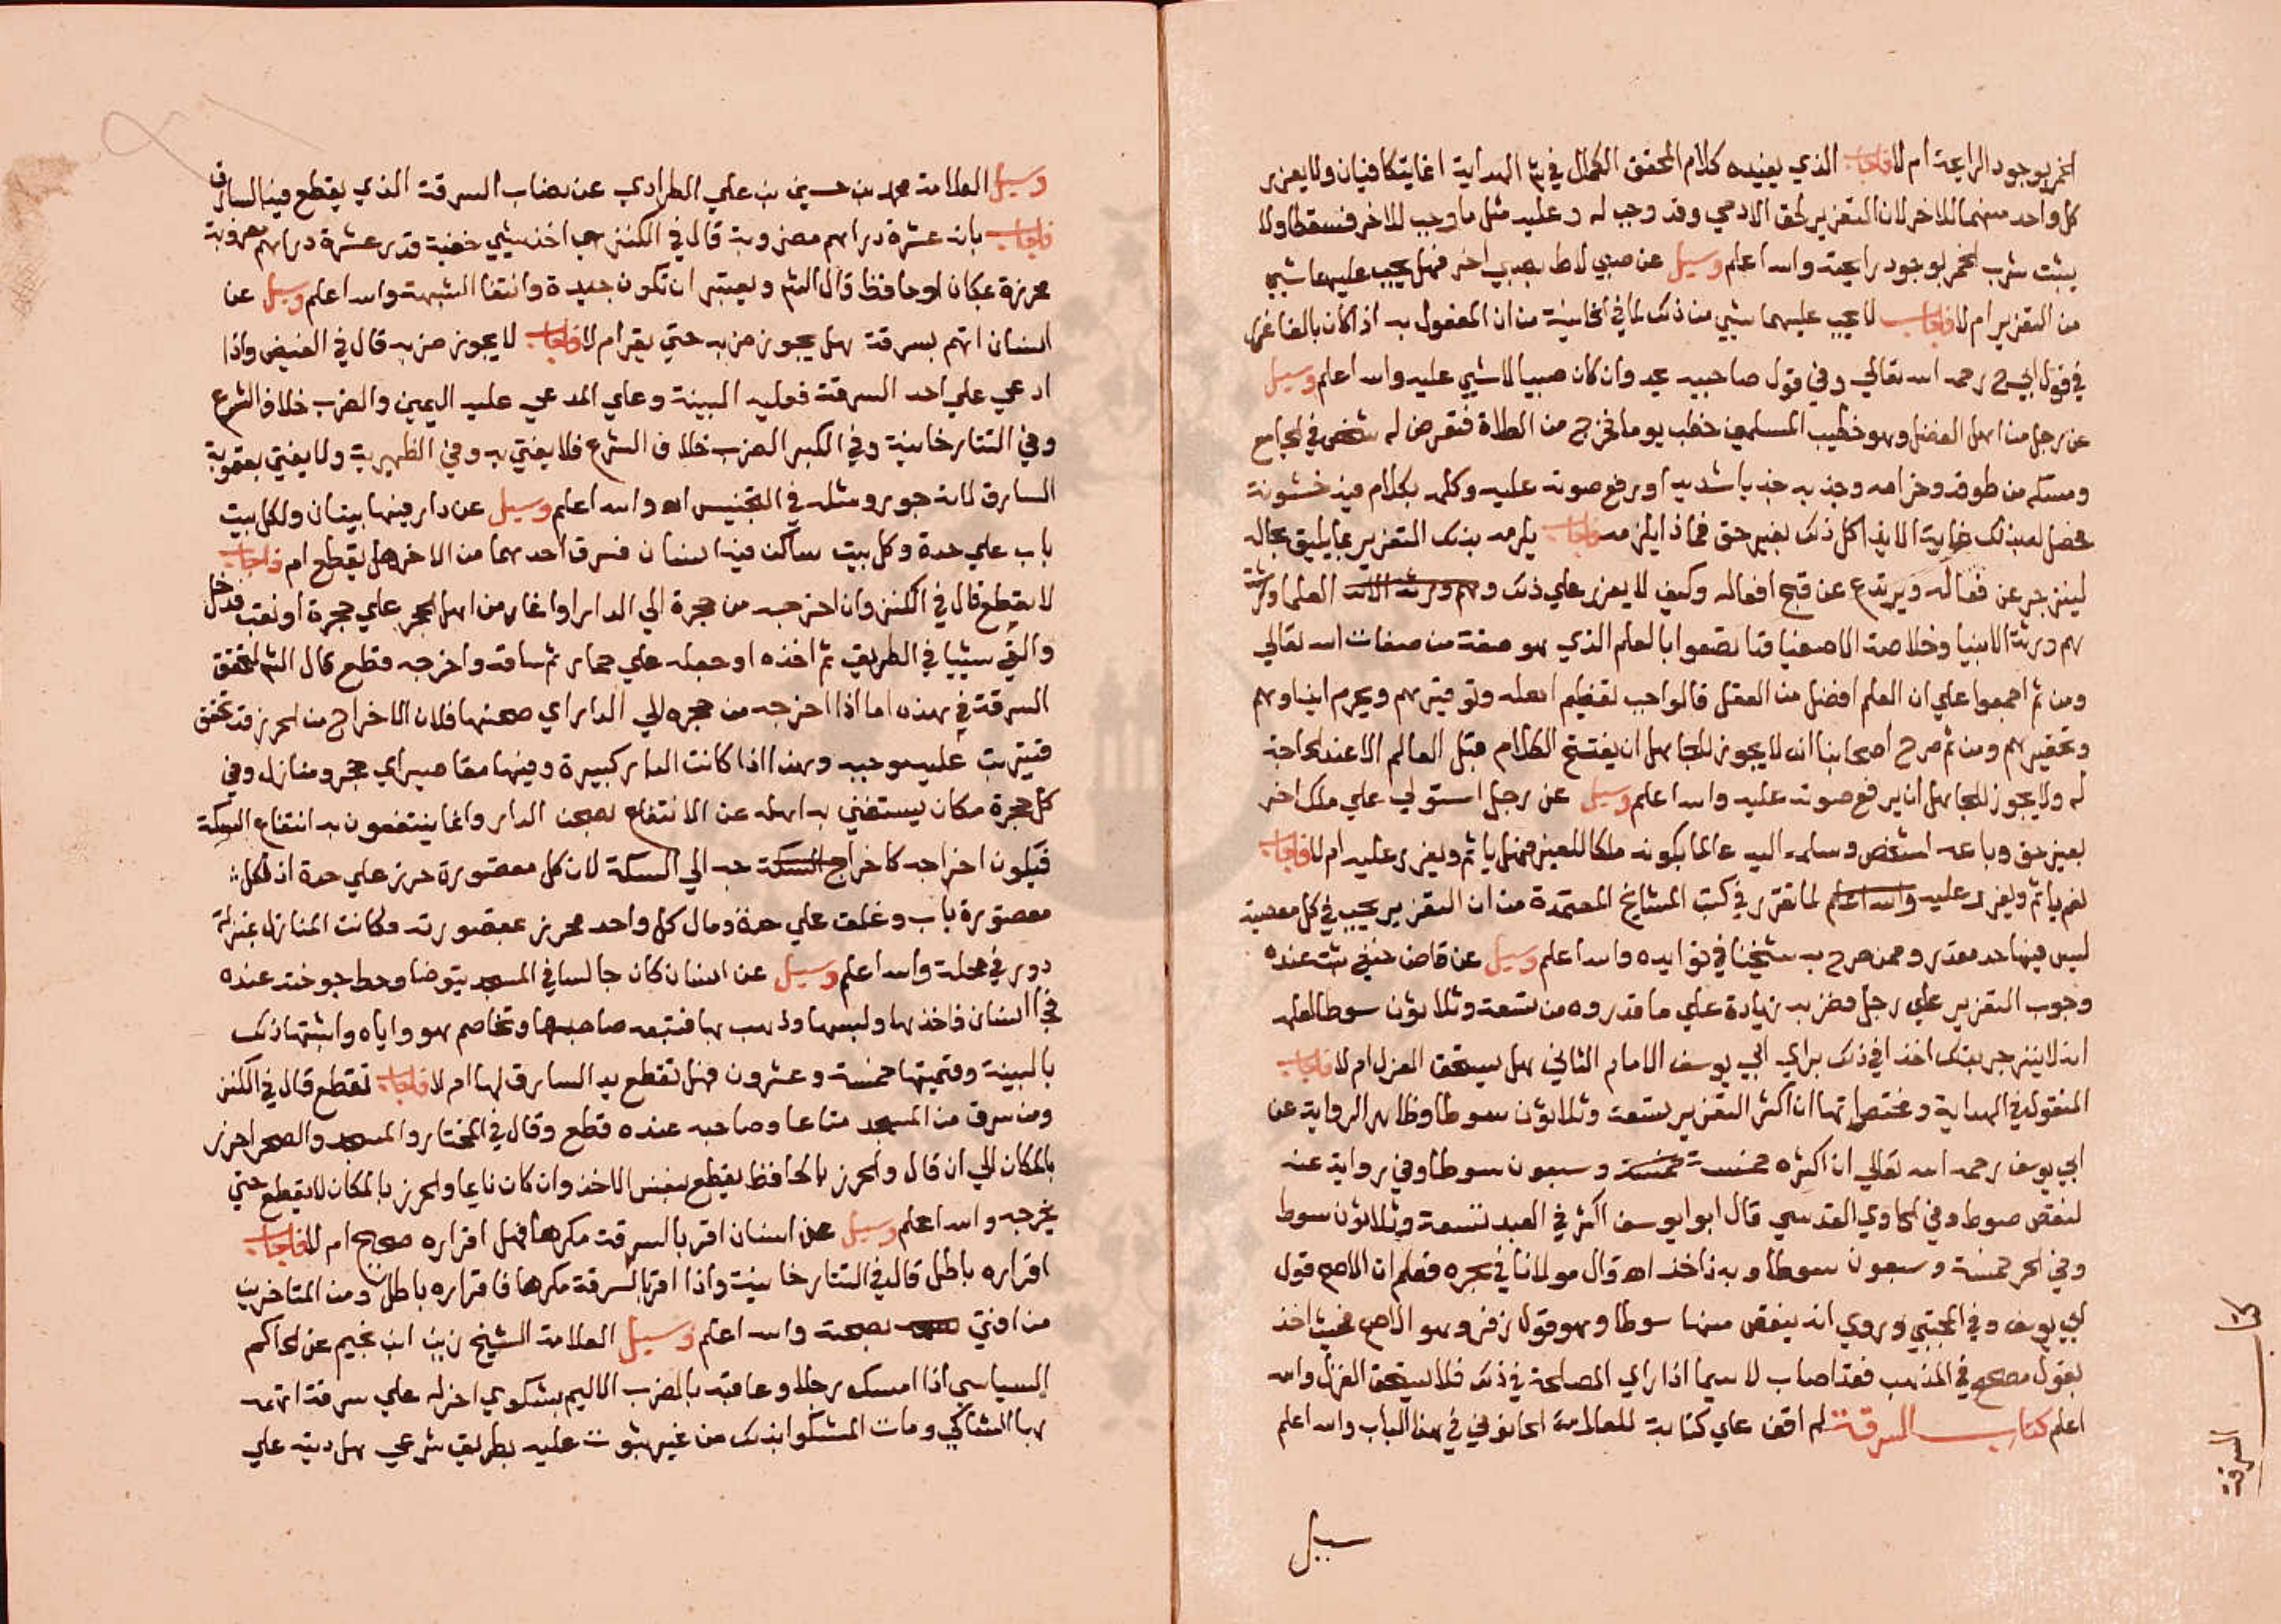 الخمر بوجود الرايحة ام لا فاجاب الذي يفيده كلام المحقق الكمال في شرح الهداية انما يتكافيان ولا يعزر
كل واحد منهما للاخر لان التعزير لحق الادمي وقد وجب له وعليه مثل ما وجب للاخر فتساقطا ولا
يثبت شرب الخمر بوجود رايحته والله اعلم وسيل عن صبي لاط بصبي اخر فهل يجب عليهما شيي
من التعزير ام لا فاجاب لا يجب عليهما شيي من ذلك لما في الخانية من ان المفعول به اذا كان بالغا عزر
في قول ابي ح رحمه الله تعالي وفي قول صاحبيه يحد وان كان صبيا لا شيي عليه والله اعلم وسيل
عن رجل من اهل الفضل وهو خطيب المسلمين خطب يوما فخرج من الصلاة فتعرض له شخص في الجامع
ومسكه من طوقه وحزامه وجذبه جذبا شديدا ورفع صوته عليه وكلمه بكلام فيه خشونة
فحصل له بذلك غاية الايذا كل ذلك بغير حق فماذا يلزمه فاجاب يلزمه بذلك التعزير بما يليق بحاله
لينزجر عن فعاله ويرتدع عن قبح افعاله وكيف لا يعزر علي ذلك وهم ورثة الانبـ العلما ورثة
هم ورثة الانبيا وخلاصة الاصفيا قد اتصفوا بالعلم الذي هو صفة من صفات الله تعالي
ومن ثم اجمعوا علي ان العلم افضل من العقل فالواجب تعظيم اهله وتوقيرهم ويحرم ايذاوهم
وتحقيرهم ومن ثم صرح اصحابنا انه لا يجوز للجاهل ان يفتتح الكلام قبل العالم الا عند الحاجة
له ولا يجوز للجاهل ان يرفع صوته عليه والله اعلم وسيل عن رجل استولي علي ملك اخر
بغير حق وباعه لشخص وسلمه اليه عالما بكونه ملكا للغير فهل ياثم ويعزر عليه ام لا فاجاب
نعم ياثم ويعزر عليه والله اعلم لما تقرر في كتب المشايخ المعتمدة من ان التعزير يجب في كل معصية
ليس فيها حد مقدر وممن صرح به شيخنا في فوايده والله اعلم وسيل عن قاض حنفي ثبت عنده
وجوب التعزير علي رجل فضربه زيادة علي ما قدروه من تسعة وثلاثون سوطا لعلمه
انه لا ينزجر بتلك اخذا في ذلك براي ابي يوسف الامام الثاني هل يستحق العزل ام لا فاجاب
المنقول في الهداية ومختصراتها ان اكثر التعزير تسعة وثلاثون سوطا وظاهر الرواية عن
ابي يوسف رحمه الله تعالي ان اكثره خمسة خمسة وسبعون سوطا وفي رواية عنه
ينقص سوط وفي الحاوي القدسي قال ابو ايوسف اكثره في العبد تسعة وثلاثون سوط
وفي الحر خمسة وسبعون سوطا وبه ناخذ اه وقال مولانا في بحره فعلم ان الاصح قول
ابي يوسف وفي المجتبي وروي انه ينقص منها سوطا وهو قول زفر وهو الاصح فحيث اخذ
بقول مصحح في المذهب فقد اصاب لا سيما اذا راي المصلحة في ذلك فلا يستحق العزل والله
اعلم كتاب السرقة لم اقف علي كتابة للعلامة الحانوتي في هذا الباب والله اعلم
وسيل
كتاب
السرقة
وسيل العلامة محمد بن حسين بن علي الطرادي عن نصاب السرقة الذي يقطع فيه السارق
فاجاب بانه عشرة دراهم مضروبة قال في الكنز هي اخذ شيي خفية قدر عشرة دراهم مضروبة
محرزة بمكان او حافظ قال الشم ويعتبر ان تكون جيدة وانتفا الشبهة والله اعلم وسيل عن
انسان اتهم بسرقة هل يجوز ضربه حتي يقر ام لا فاجاب لا يجوز ضربه قال في الفيض واذا
ادعي علي احد السرقة فعليه البينة وعلي المدعي عليه اليمين والضرب خلاف الشرع
وفي التتارخانية وفي الكبر الضرب خلاف الشرع فلا يفتي به وفي الظهيرية ولا يفتي بعقوبة
السارق لانه جور ومثله في التجنيس اه والله اعلم وسيل عن دار فيها بيتان ولكل بيت
باب علي حدة وكل بيت ساكن فيه انسان فسرق احدهما من الاخر هل يقطع ام فاجاب
لا يقطع قال في الكنز وان اخرجه من حجرة الي الدار او اغار من اهل الحجر علي حجرة او نقب فدخل
والقي شييا في الطريق ثم اخذه او حمله علي حمار ثم ساقه واخرجه قطع قال الشم لتحقق
السرقة في هذه اما اذا اخرجه من حجره الي الدار اي صحنها فلان الاخراج من الحرز قد تحقق
فيترتب عليه موجبه وهذا اذا كانت الدار كبيرة وفيها مقاصير اي حجر ومنازل وفي
كل حجرة مكان يستغني به اهله عن الانتفاع بصحن الدار وانما ينتفعون به انتفاع السكة
فيكون اخراجه كاخراج السكة جه الي السكة لان كل مقصورة حرز علي حدة اذ لكل
مقصورة باب وغلق علي حدة ومال كل واحد محرز بمقصورته فكانت المنازل بمنزلة
دور في محلة والله اعلم وسيل عن انسان كان جالسا في المسجد يتوضا وحط جوخته عنده
فجا انسان فاخذها ولبسها وذهب بها فتبعه صاحبها وتخاصم هو واياه واثبتها ذلك
بالبينة وقيمتها خمسة وعشرون فهل تقطع يد السارق لها ام لا فاجاب تقطع قال في الكنز
ومن سرق من المسجد متاعا وصاحبه عنده قطع وقال في المختار والمسجد والصحرا حرز
بالمكان الي ان قال والحرز بالحافظ يقطع بنفس الاخذ وان كان نايما والحرز بالمكان لا يقطع حتي
يخرجه والله اعلم وسيل عن انسان اقر بالسرقة مكرها فهل اقراره صحيح ام لا فاجاب
اقراره باطل قال في التتارخانية واذا اقر بالسرقة مكرها فاقراره باطل ومن المتاخرين
من افتي بصحته والله اعلم وسيل العلامة الشيخ زين ابن نجيم عن الحاكم
السياسي اذا امسك رجلا وعاقبه بالضرب الاليم بشكوي اخر له علي سرقة اتهمه
بها الشاكي ومات المشكو بذلك من غير ثبوت عليه بطريق شرعي هل ديته علي